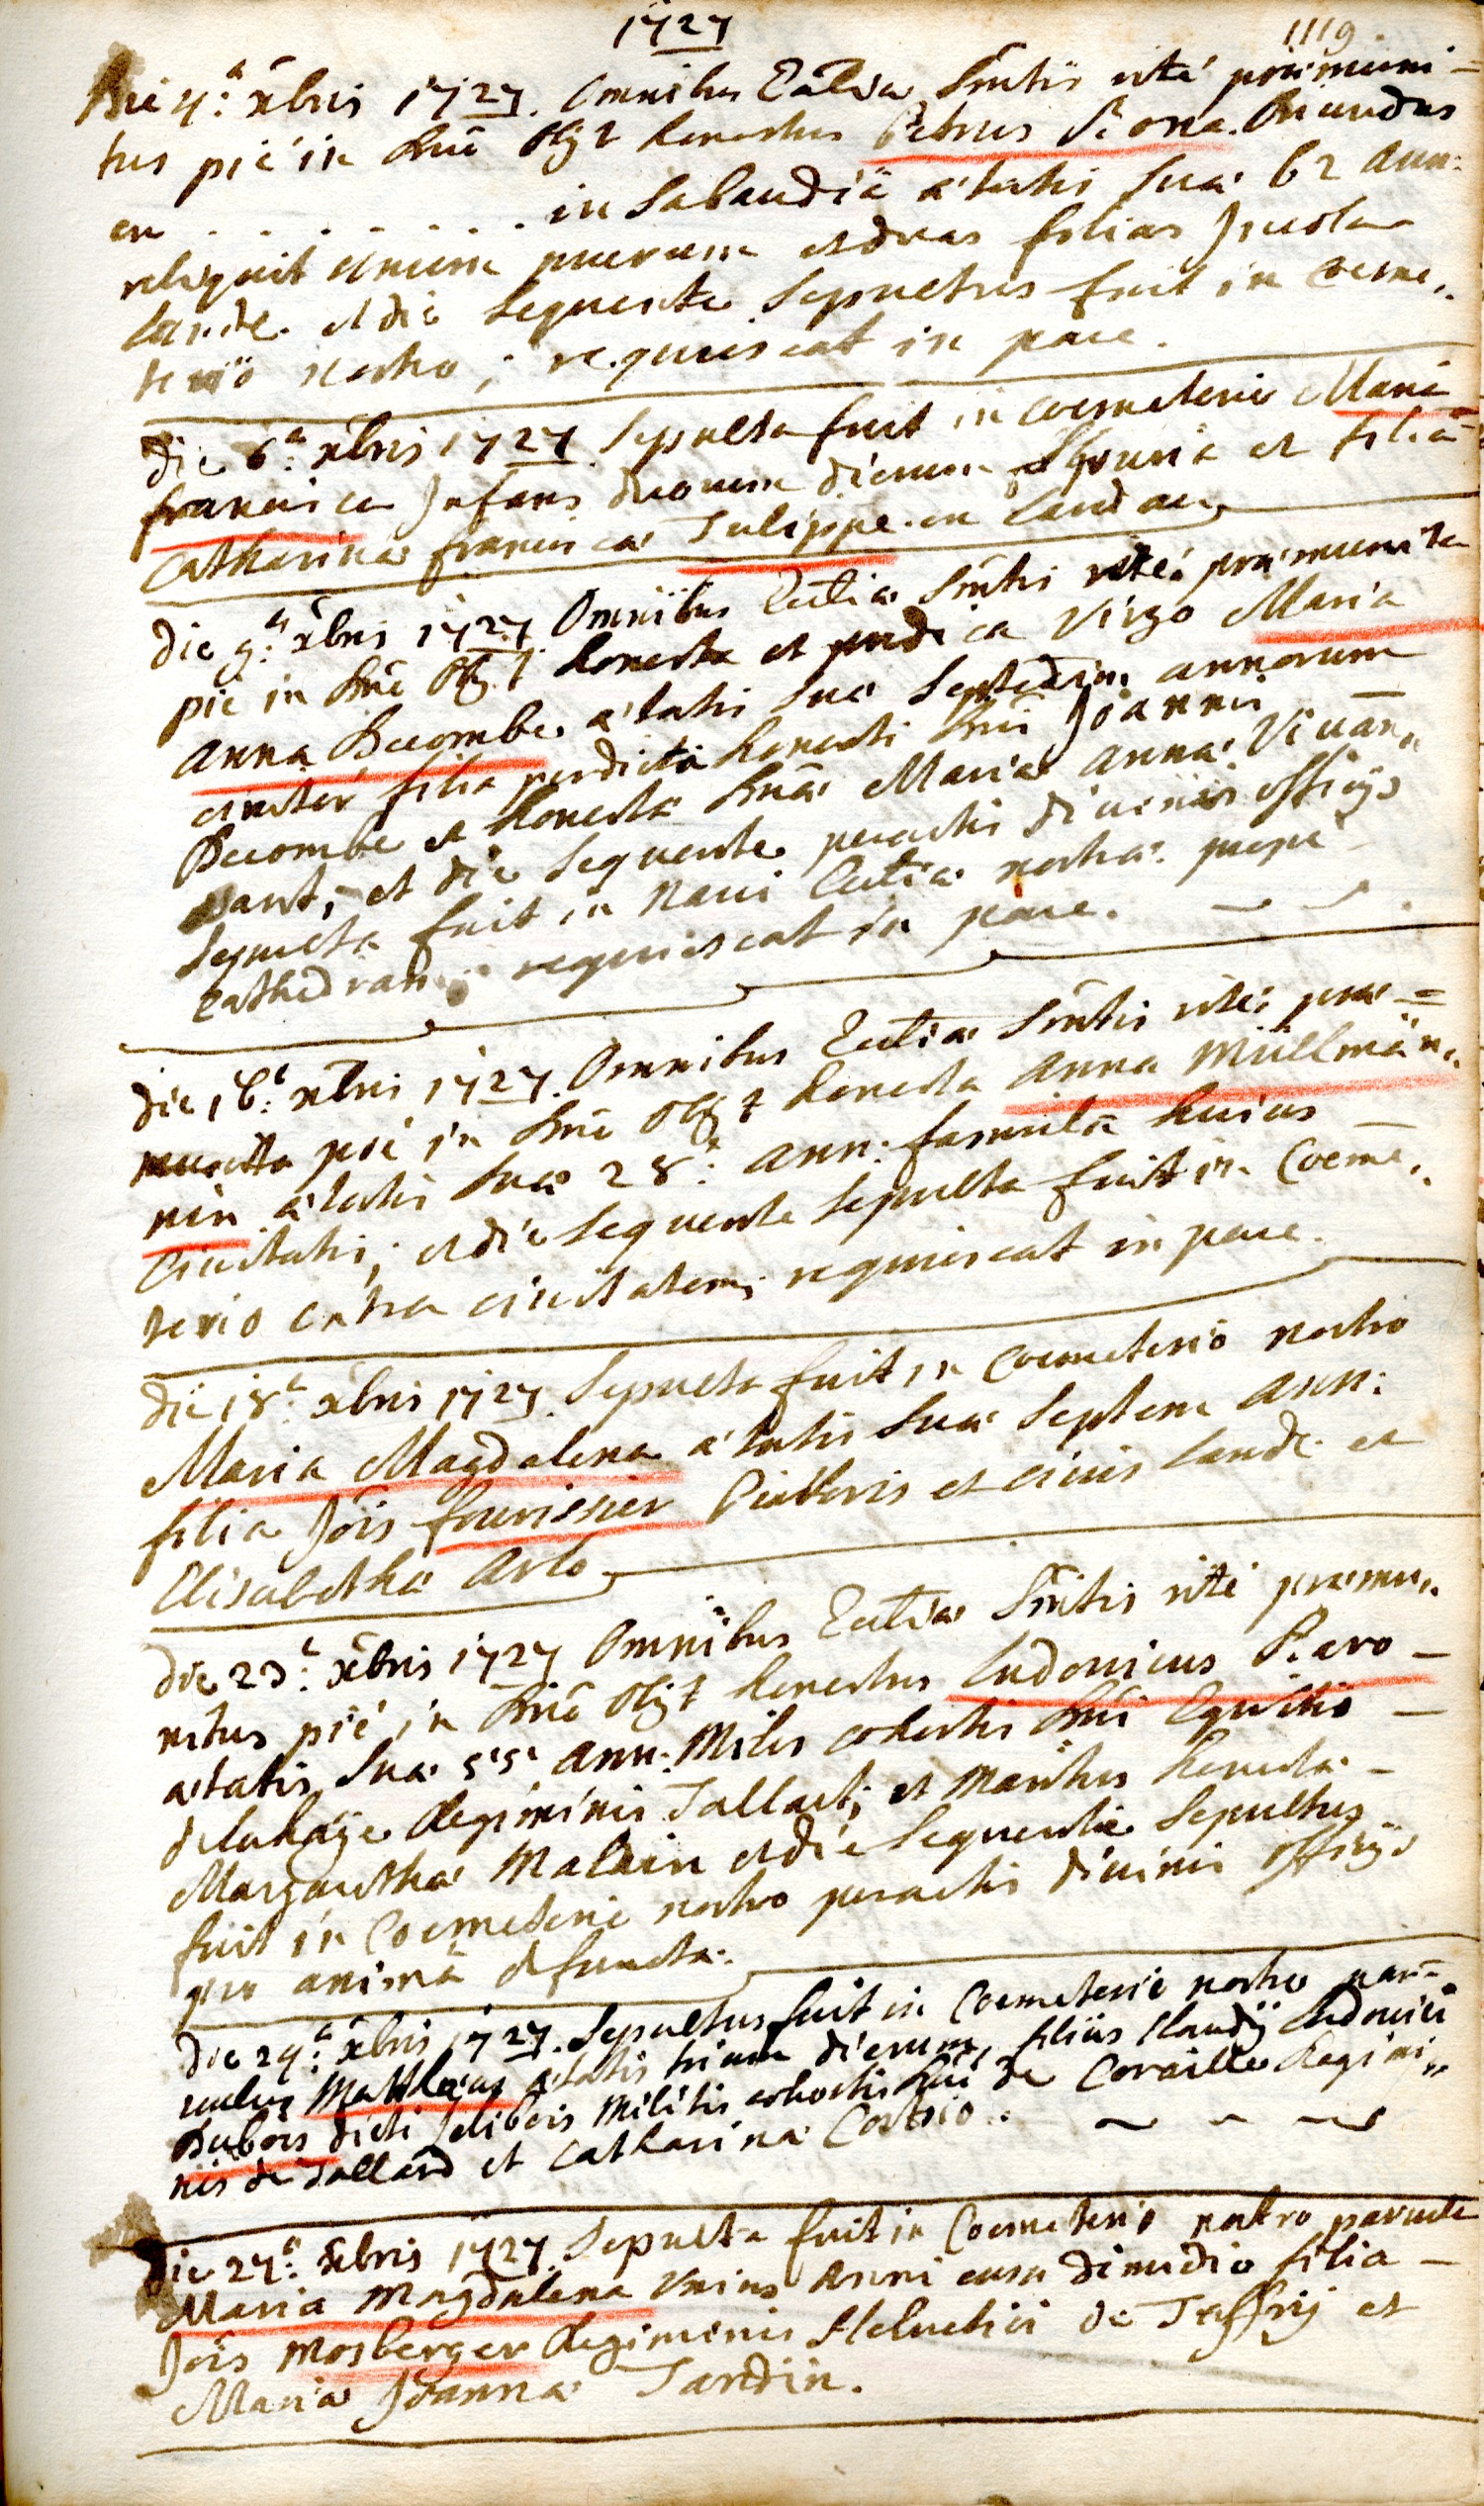 1727
1119.
Die 4:a xbris 1727. Omnibus Eccliæ Sm̄tis rité præmuni=
tus pié in Dnō obijt honestus Petrus Rona. oriundus
ex . . . . . . . . in Sabaudiâ ætatis suæ 62 ann:
reliquit unum puerum et duas filias Incola
Landæ. et die sequente sepultus fuit in coeme,,
terio nostro; requiescat in pace.
die 6:a xbris 1727. Sepulta fuit in coemeterio Maria
francisca Infans duorum dierum spuria et filia
Catharinæ franciscæ Tulippe. in Landau
Die 9:a xbris 1727. Omnibus Eccliæ Sm̄tis rité præmunita
pié in Dnō obijt honesta et pudica Virgo Maria
Anna Decombe. ætatis suæ septedecim annorum
circitér filia perdicta honesti Dni Joannis
Decombe et honestæ Dnæ Mariæ Annæ Vivan,,
Sant; et die sequente peractis divinis officijs
sepulta fuit in navi Eccliæ nostræ propé
Cathedram requiescat in pace.
die 16:a xbris 1727. Omnibus Eccliæ Sm̄tis rité præ=
munita pié in Dnō obijt honesta Anna Müllmän,,
nin ætatis suæ 28: ann: famula huius
Civitatis; et die sequente sepulta fuit in Coeme,,
terio extra civitatem; requiescat in pace.
die 18:a xbris 1727. Sepulta fuit in Coemeterio nostro
Maria Magdalena ætatis suæ septem ann:
filia Jois fourissier Pictoris et civis Landæ et
Elisabethæ Arlo
die 23:a xbris 1727 Omnibus Eccliæ Sm̄tis rité præmu,,
nitus pié in Dnō obijt honestus Ludovicus Ravo –
ætatis suæ 55 ann: Miles cohortis Dni Equitis –
delahaÿe Regiminis Tallart; et maritus honestæ –
Margarethæ Malain et die sequente sepultus
fuit in Coemeterio nostro peractis divinis officijs
pro animâ defuncta.
die 24:a xbris 1727. Sepultus fuit in Coemeterio nostro par=
vulus Matthæus ætatis trium dierum, filius Claudij Ludovici
Dubois dicti Jolibois Militis cohortis Dni de Coraille Regimi,,
nis de Tallard et Catharinæ Costrio.
Die 27:a xbris 1727. Sepulta fuit in Coemeterio nostro parvula
Maria Magdalena Unius Anni cum dimidio filia –
Jois Mosberger Regiminis Helvetici de Jaffrij et
Mariæ Joannæ Jardin.